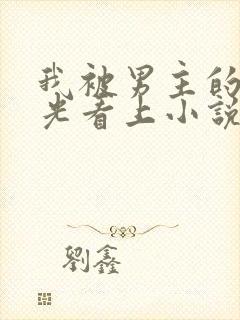 我被男主的
光看上小説
劉鑫